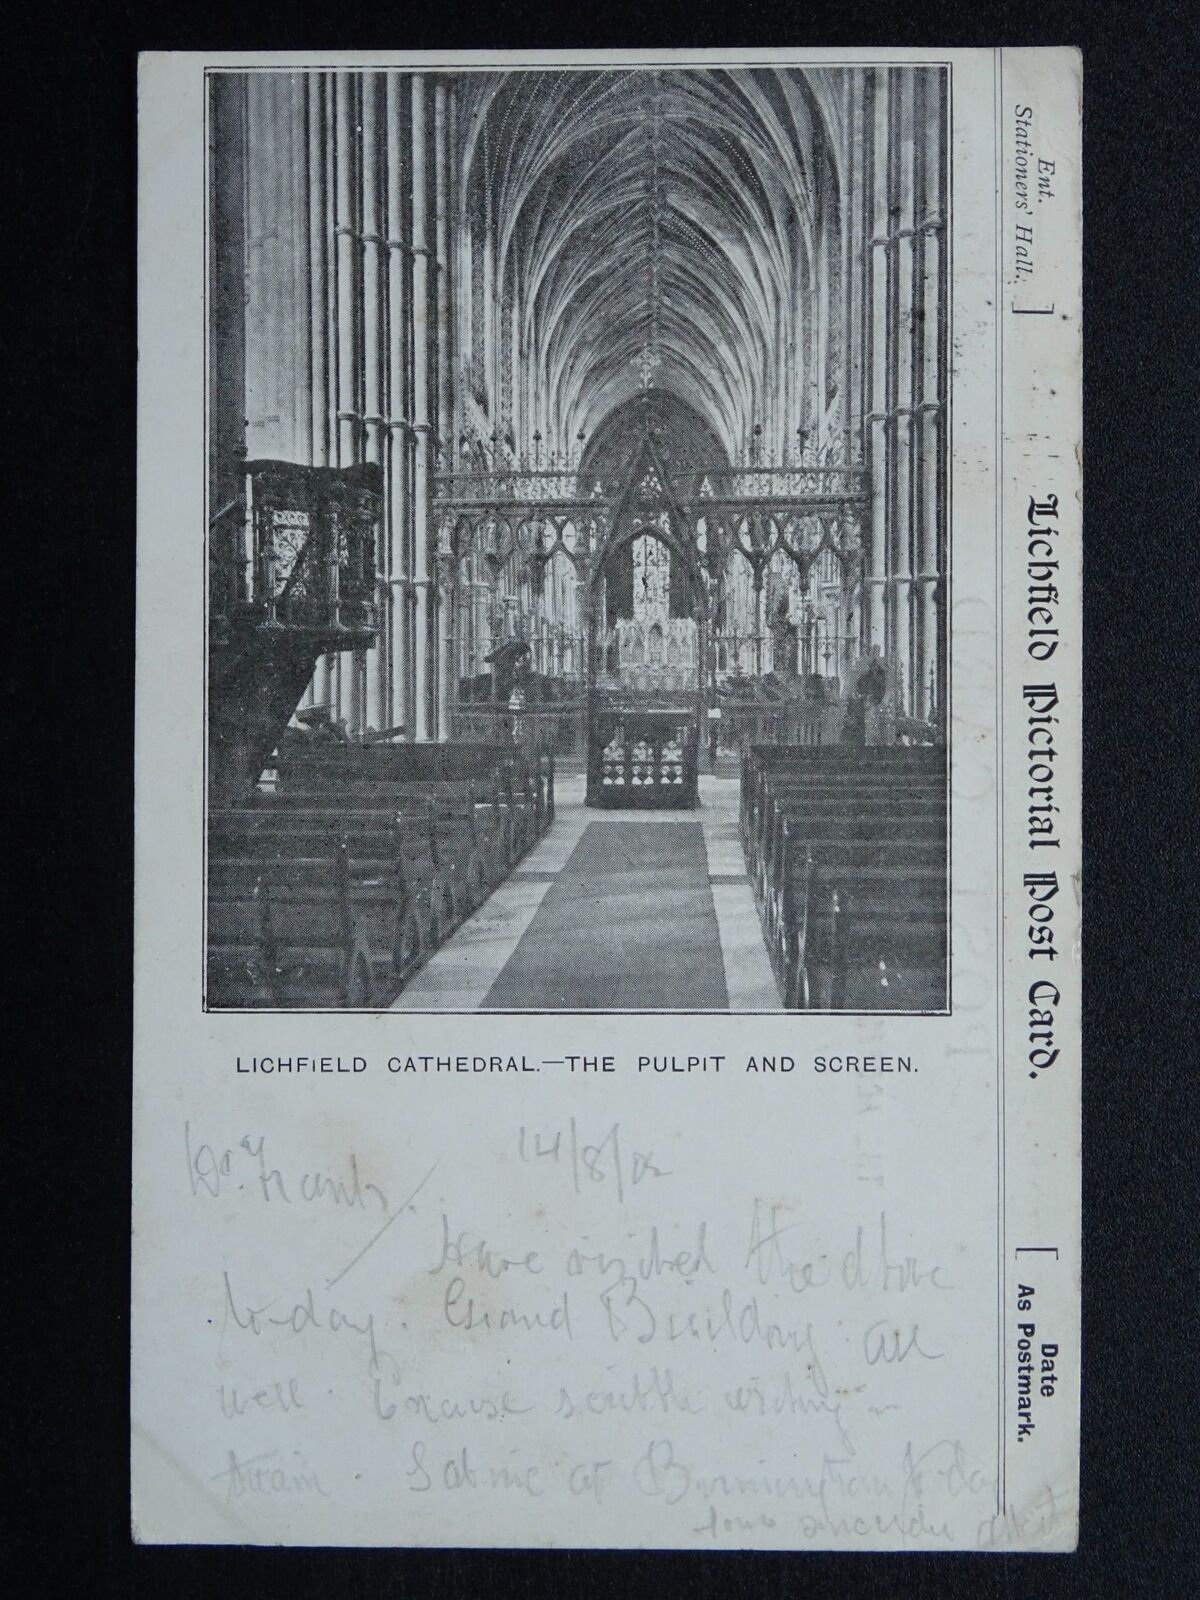 Ent.
Stationers' Hall. ]
Lichfield Pictorial Post Card.
[ Date
As Postmark.
LICHFIELD CATHEDRAL.—THE PULPIT AND SCREEN.
14/8/02
Dr. Frank
Have visited the above
to-day. Grand Building. All
well. Excuse scribble writing in
train. at Birmingham to-day
Yours sincerely